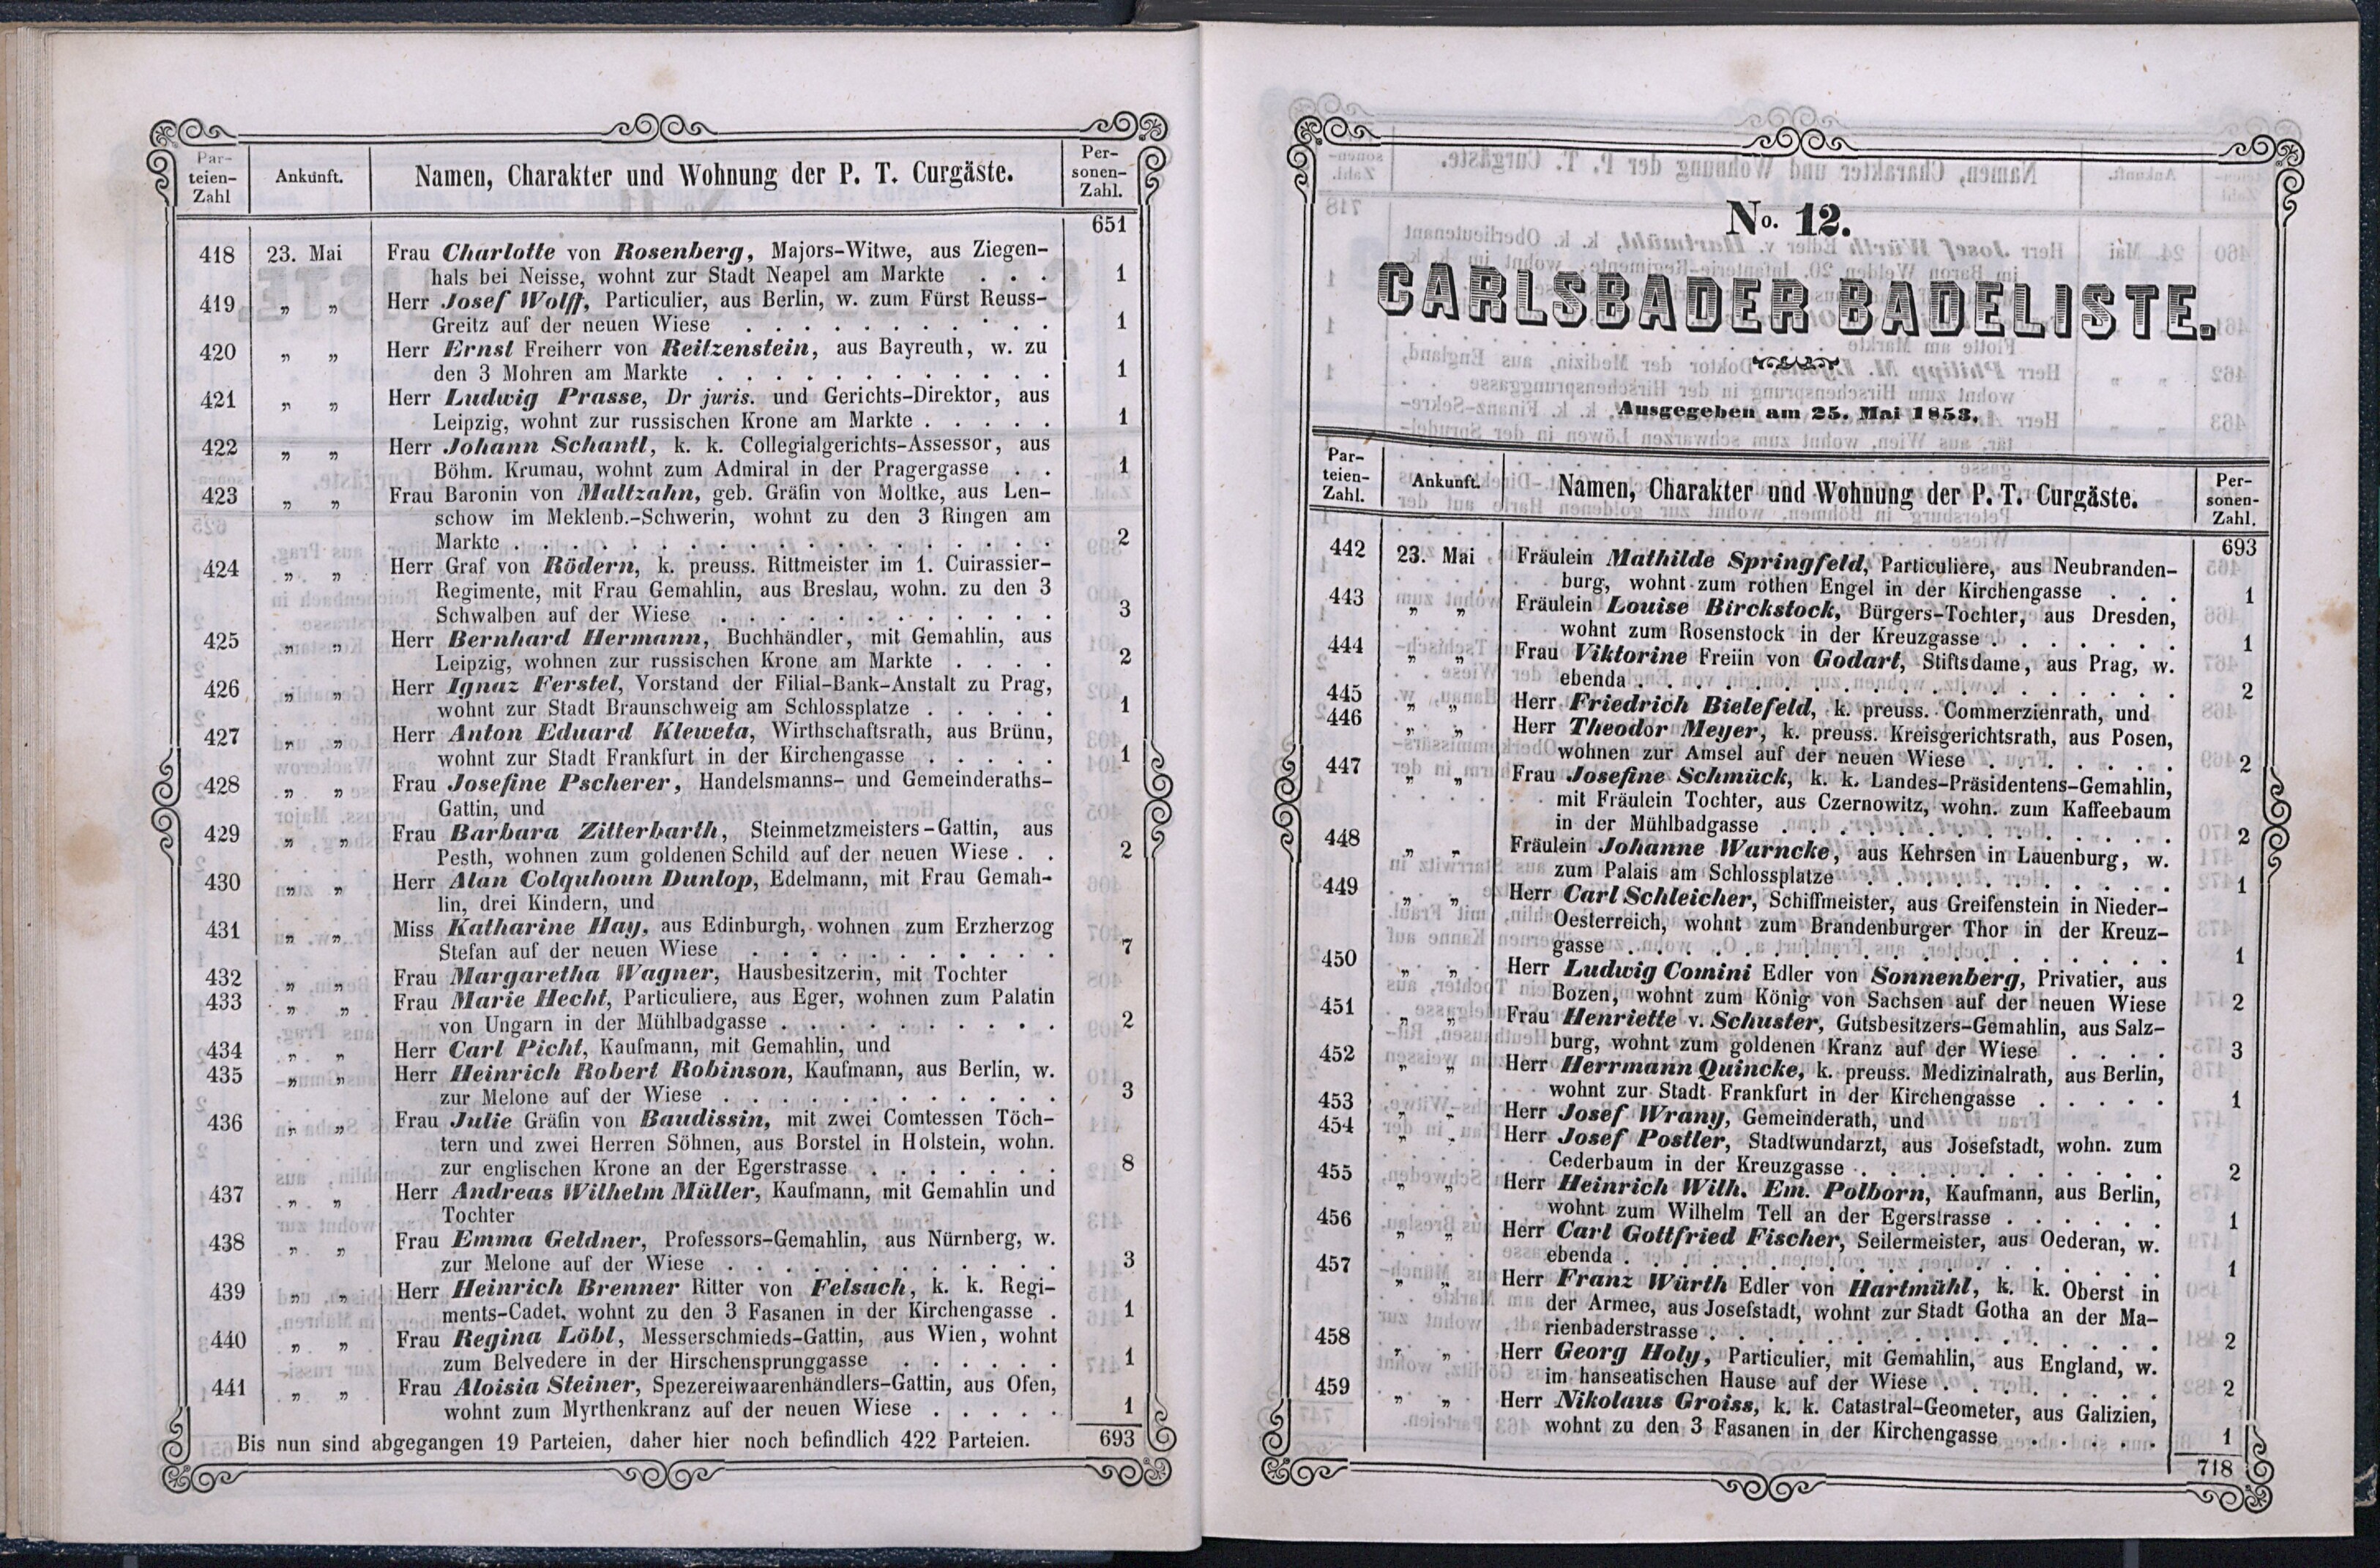 Par-
teien-
Zahl
Ankunft.
Namen, Charakter und Wohnung der P. T. Curgäste.
Per-
sonen-
Zahl.
651
418 23. Mai Frau Charlotte von Rosenberg, Majors-Witwe, aus Ziegen-
hals bei Neisse, wohnt zur Stadt Neapel am Markte . . . 1
419 „ „ Herr Josef Wolff, Particulier, aus Berlin, w. zum Fürst Reuss-
Greitz auf der neuen Wiese . . . . . . . . . . . 1
420 „ „ Herr Ernst Freiherr von Reitzenstein, aus Bayreuth, w. zu
den 3 Mohren am Markte . . . . . . . . . . . . 1
421 „ „ Herr Ludwig Prasse, Dr juris. und Gerichts-Direktor, aus
Leipzig, wohnt zur russischen Krone am Markte . . . . . 1
422 „ „ Herr Johann Schantl, k. k. Collegialgerichts-Assessor, aus
Böhm. Krumau, wohnt zum Admiral in der Pragergasse . . 1
423 „ „ Frau Baronin von Maltzahn, geb. Gräfin von Moltke, aus Len-
schow im Meklenb.-Schwerin, wohnt zu den 3 Ringen am
Markte . . . . . . . . . . . . . . . . . . . 2
424 „ „ Herr Graf von Rödern, k. preuss. Rittmeister im 1. Cuirassier-
Regimente, mit Frau Gemahlin, aus Breslau, wohn. zu den 3
Schwalben auf der Wiese . . . . . . . . . . . . 3
425 „ „ Herr Bernhard Hermann, Buchhändler, mit Gemahlin, aus
Leipzig, wohnen zur russischen Krone am Markte . . . . 2
426 „ „ Herr Ignaz Ferstel, Vorstand der Filial-Bank-Anstalt zu Prag,
wohnt zur Stadt Braunschweig am Schlossplatze . . . . . 1
427 „ „ Herr Anton Eduard Kleweta, Wirthschaftsrath, aus Brünn,
wohnt zur Stadt Frankfurt in der Kirchengasse . . . . . 1
428 „ „ Frau Josefine Pscherer, Handelsmanns- und Gemeinderaths-
Gattin, und
429 „ „ Frau Barbara Zitterbarth, Steinmetzmeisters-Gattin, aus
Pesth, wohnen zum goldenen Schild auf der neuen Wiese . . 2
430 „ „ Herr Alan Colquhoun Dunlop, Edelmann, mit Frau Gemah-
lin, drei Kindern, und
431 „ „ Miss Katharine Hay, aus Edinburgh, wohnen zum Erzherzog
Stefan auf der neuen Wiese . . . . . . . . . . . 7
432 „ „ Frau Margaretha Wagner, Hausbesitzerin, mit Tochter
433 „ „ Frau Marie Hecht, Particuliere, aus Eger, wohnen zum Palatin
von Ungarn in der Mühlbadgasse . . . . . . . . . . 2
434 „ „ Herr Carl Picht, Kaufmann, mit Gemahlin, und
435 „ „ Herr Heinrich Robert Robinson, Kaufmann, aus Berlin, w.
zur Melone auf der Wiese . . . . . . . . . . . . 3
436 „ „ Frau Julie Gräfin von Baudissin, mit zwei Comtessen Töch-
tern und zwei Herren Söhnen, aus Borstel in Holstein, wohn.
zur englischen Krone an der Egerstrasse . . . . . . . 8
437 „ „ Herr Andreas Wilhelm Müller, Kaufmann, mit Gemahlin und
Tochter
438 „ „ Frau Emma Geldner, Professors-Gemahlin, aus Nürnberg, w.
zur Melone auf der Wiese . . . . . . . . . . . . 3
439 „ „ Herr Heinrich Brenner Ritter von Felsach, k. k. Regi-
ments-Cadet, wohnt zu den 3 Fasanen in der Kirchengasse . 1
440 „ „ Frau Regina Löbl, Messerschmieds-Gattin, aus Wien, wohnt
zum Belvedere in der Hirschensprunggasse . . . . . . 1
441 „ „ Frau Aloisia Steiner, Spezereiwaarenhändlers-Gattin, aus Ofen,
wohnt zum Myrthenkranz auf der neuen Wiese . . . . . 1
Bis nun sind abgegangen 19 Parteien, daher hier noch befindlich 422 Parteien. 693
No. 12.
CARLSBADER BADELISTE.
Ausgegeben am 25. Mai 1853.
Par-
teien-
Zahl.
Ankunft.
Namen, Charakter und Wohnung der P. T. Curgäste.
Per-
sonen-
Zahl.
693
442 23. Mai Fräulein Mathilde Springfeld, Particuliere, aus Neubranden-
burg, wohnt zum rothen Engel in der Kirchengasse . . . 1
443 „ „ Fräulein Louise Birckstock, Bürgers-Tochter, aus Dresden,
wohnt zum Rosenstock in der Kreuzgasse . . . . . . . 1
444 „ „ Frau Viktorine Freiin von Godart, Stiftsdame, aus Prag, w.
ebenda . . . . . . . . . . . . . . . . . . . 2
445 „ „ Herr Friedrich Bielefeld, k. preuss. Commerzienrath, und
446 „ „ Herr Theodor Meyer, k. preuss. Kreisgerichtsrath, aus Posen,
wohnen zur Amsel auf der neuen Wiese . . . . . . . 2
447 „ „ Frau Josefine Schmück, k. k. Landes-Präsidentens-Gemahlin,
mit Fräulein Tochter, aus Czernowitz, wohn. zum Kaffeebaum
in der Mühlbadgasse . . . . . . . . . . . . . . 2
448 „ „ Fräulein Johanne Warncke, aus Kehrsen in Lauenburg, w.
zum Palais am Schlossplatze . . . . . . . . . . . 1
449 „ „ Herr Carl Schleicher, Schiffmeister, aus Greifenstein in Nieder-
Oesterreich, wohnt zum Brandenburger Thor in der Kreuz-
gasse . . . . . . . . . . . . . . . . . . . . 1
450 „ „ Herr Ludwig Comini Edler von Sonnenberg, Privatier, aus
Bozen, wohnt zum König von Sachsen auf der neuen Wiese 2
451 „ „ Frau Henriette v. Schuster, Gutsbesitzers-Gemahlin, aus Salz-
burg, wohnt zum goldenen Kranz auf der Wiese . . . . 3
452 „ „ Herr Herrmann Quincke, k. preuss. Medizinalrath, aus Berlin,
wohnt zur Stadt Frankfurt in der Kirchengasse . . . . . 1
453 „ „ Herr Josef Wrany, Gemeinderath, und
454 „ „ Herr Josef Postler, Stadtwundarzt, aus Josefstadt, wohn. zum
Cederbaum in der Kreuzgasse . . . . . . . . . . . 2
455 „ „ Herr Heinrich Wilh. Em. Polborn, Kaufmann, aus Berlin,
wohnt zum Wilhelm Tell an der Egerstrasse . . . . . . 1
456 „ „ Herr Carl Gottfried Fischer, Seilermeister, aus Oederan, w.
ebenda . . . . . . . . . . . . . . . . . . . 1
457 „ „ Herr Franz Würth Edler von Hartmühl, k. k. Oberst in
der Armee, aus Josefstadt, wohnt zur Stadt Gotha an der Ma-
rienbaderstrasse . . . . . . . . . . . . . . . . 2
458 „ „ Herr Georg Holy, Particulier, mit Gemahlin, aus England, w.
im hanseatischen Hause auf der Wiese . . . . . . . . 2
459 „ „ Herr Nikolaus Groiss, k. k. Catastral-Geometer, aus Galizien,
wohnt zu den 3 Fasanen in der Kirchengasse . . . . . 1
718